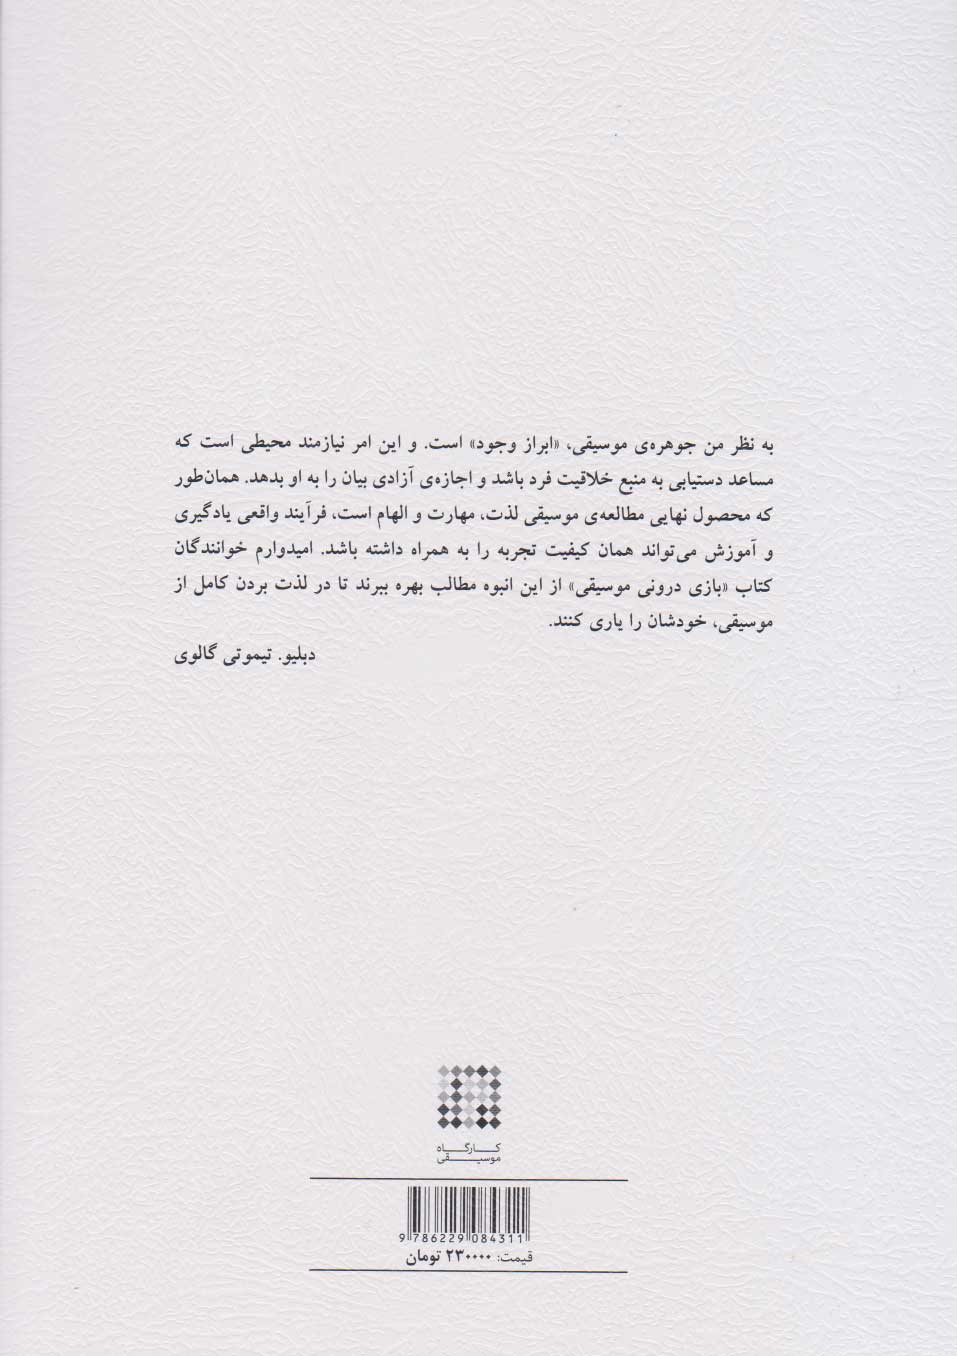 به نظر من جوهره‌ی موسیقی، «ابراز وجود» است. و این امر نیازمند محیطی است که
مساعد دستیابی به منبع خلاقیت فرد باشد و اجازه‌ی آزادی بیان را به او بدهد. همان‌طور
که محصول نهایی مطالعه‌ی موسیقی لذت، مهارت و الهام است، فرآیند واقعی یادگیری
و آموزش می‌تواند همان کیفیت تجربه را به همراه داشته باشد. امیدوارم خوانندگان
کتاب «بازی درونی موسیقی» از این انبوه مطالب بهره ببرند تا در لذت بردن کامل از
موسیقی، خودشان را یاری کنند.
دبلیو. تیموتی گالوی
کارگاه
موسیقی
9 786229 084311
قیمت: ۲۳۰۰۰۰ تومان